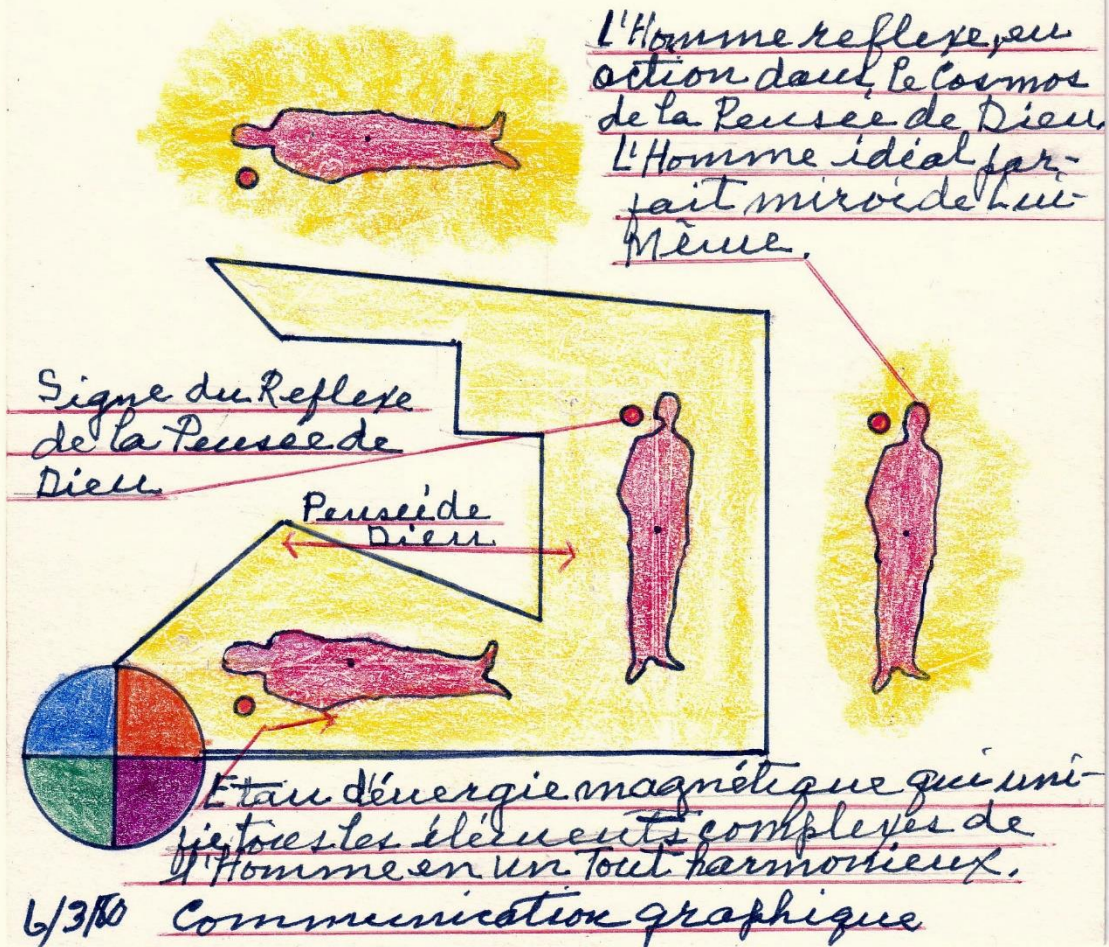 L'Homme reflexe, en
action dans le Cosmos
de la Pensée de Dieu.
L'Homme idéal par-
fait miroir de Lui-
Même.
Signe du Reflexe
de la Pensée de
Dieu
Pensée de
Dieu
Etau d'énergie magnétique qui uni-
fie tous les éléments complexes de
l'Homme en un Tout harmonieux.
6/3/80 Communication graphique